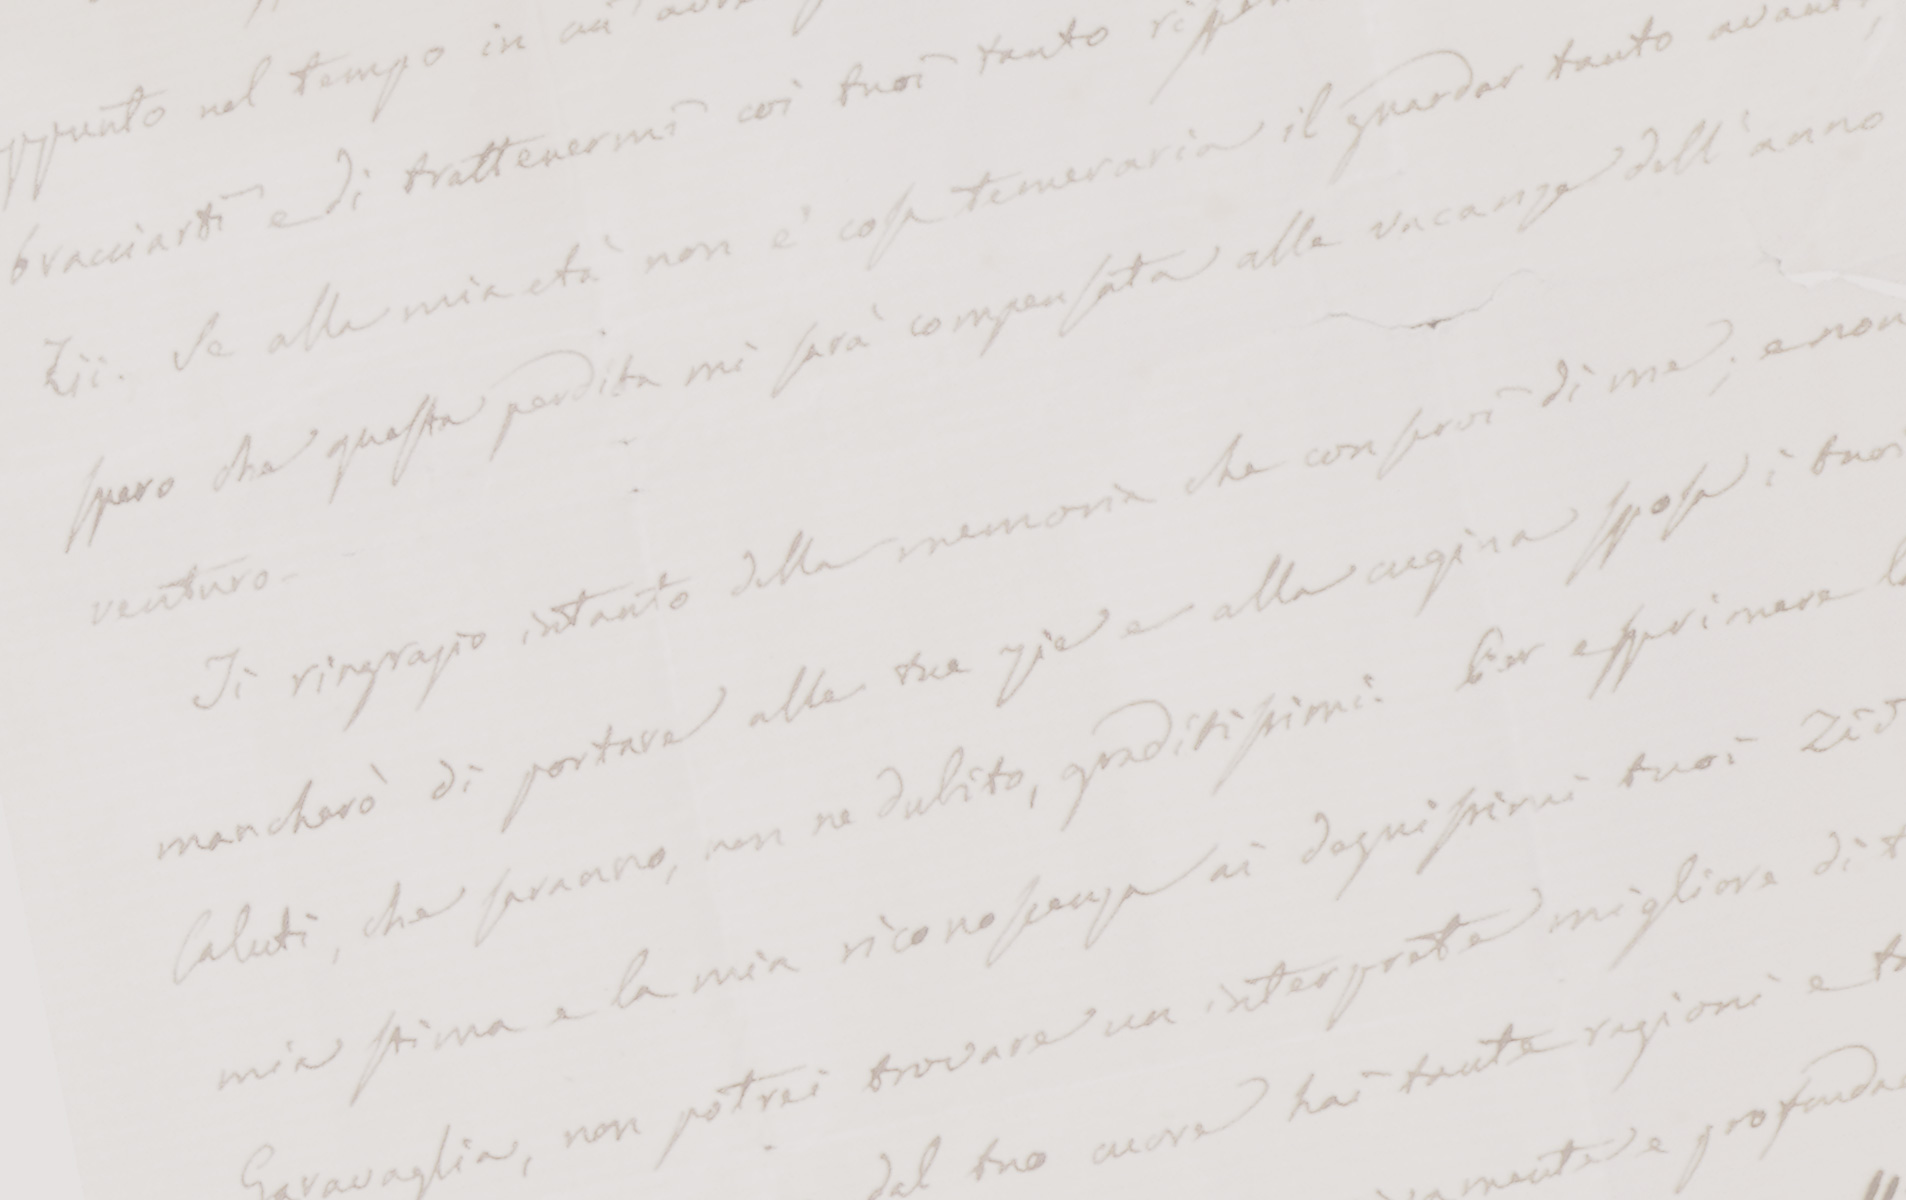 nel tempo in cui
bracciarti e di trattenermi coi tuoi tanto
Zii. Se alla mia età non è cosa temeraria il guardar tanto avanti,
spero che questa perdita mi sarà compensata alle vacanze dell'anno
venturo.
Ti ringrazio intanto della memoria che conservi di me; e non
mancherò di portare alle tue zie e alla cugina sposa i tuoi
saluti, che saranno, non ne dubito, graditissimi. Per esprimere la
mia stima e la mia riconoscenza ai degnissimi tuoi Zii
Garavaglia, non potrei trovare un interprete migliore di
dal tuo cuore hai tante ragioni e
e profonda